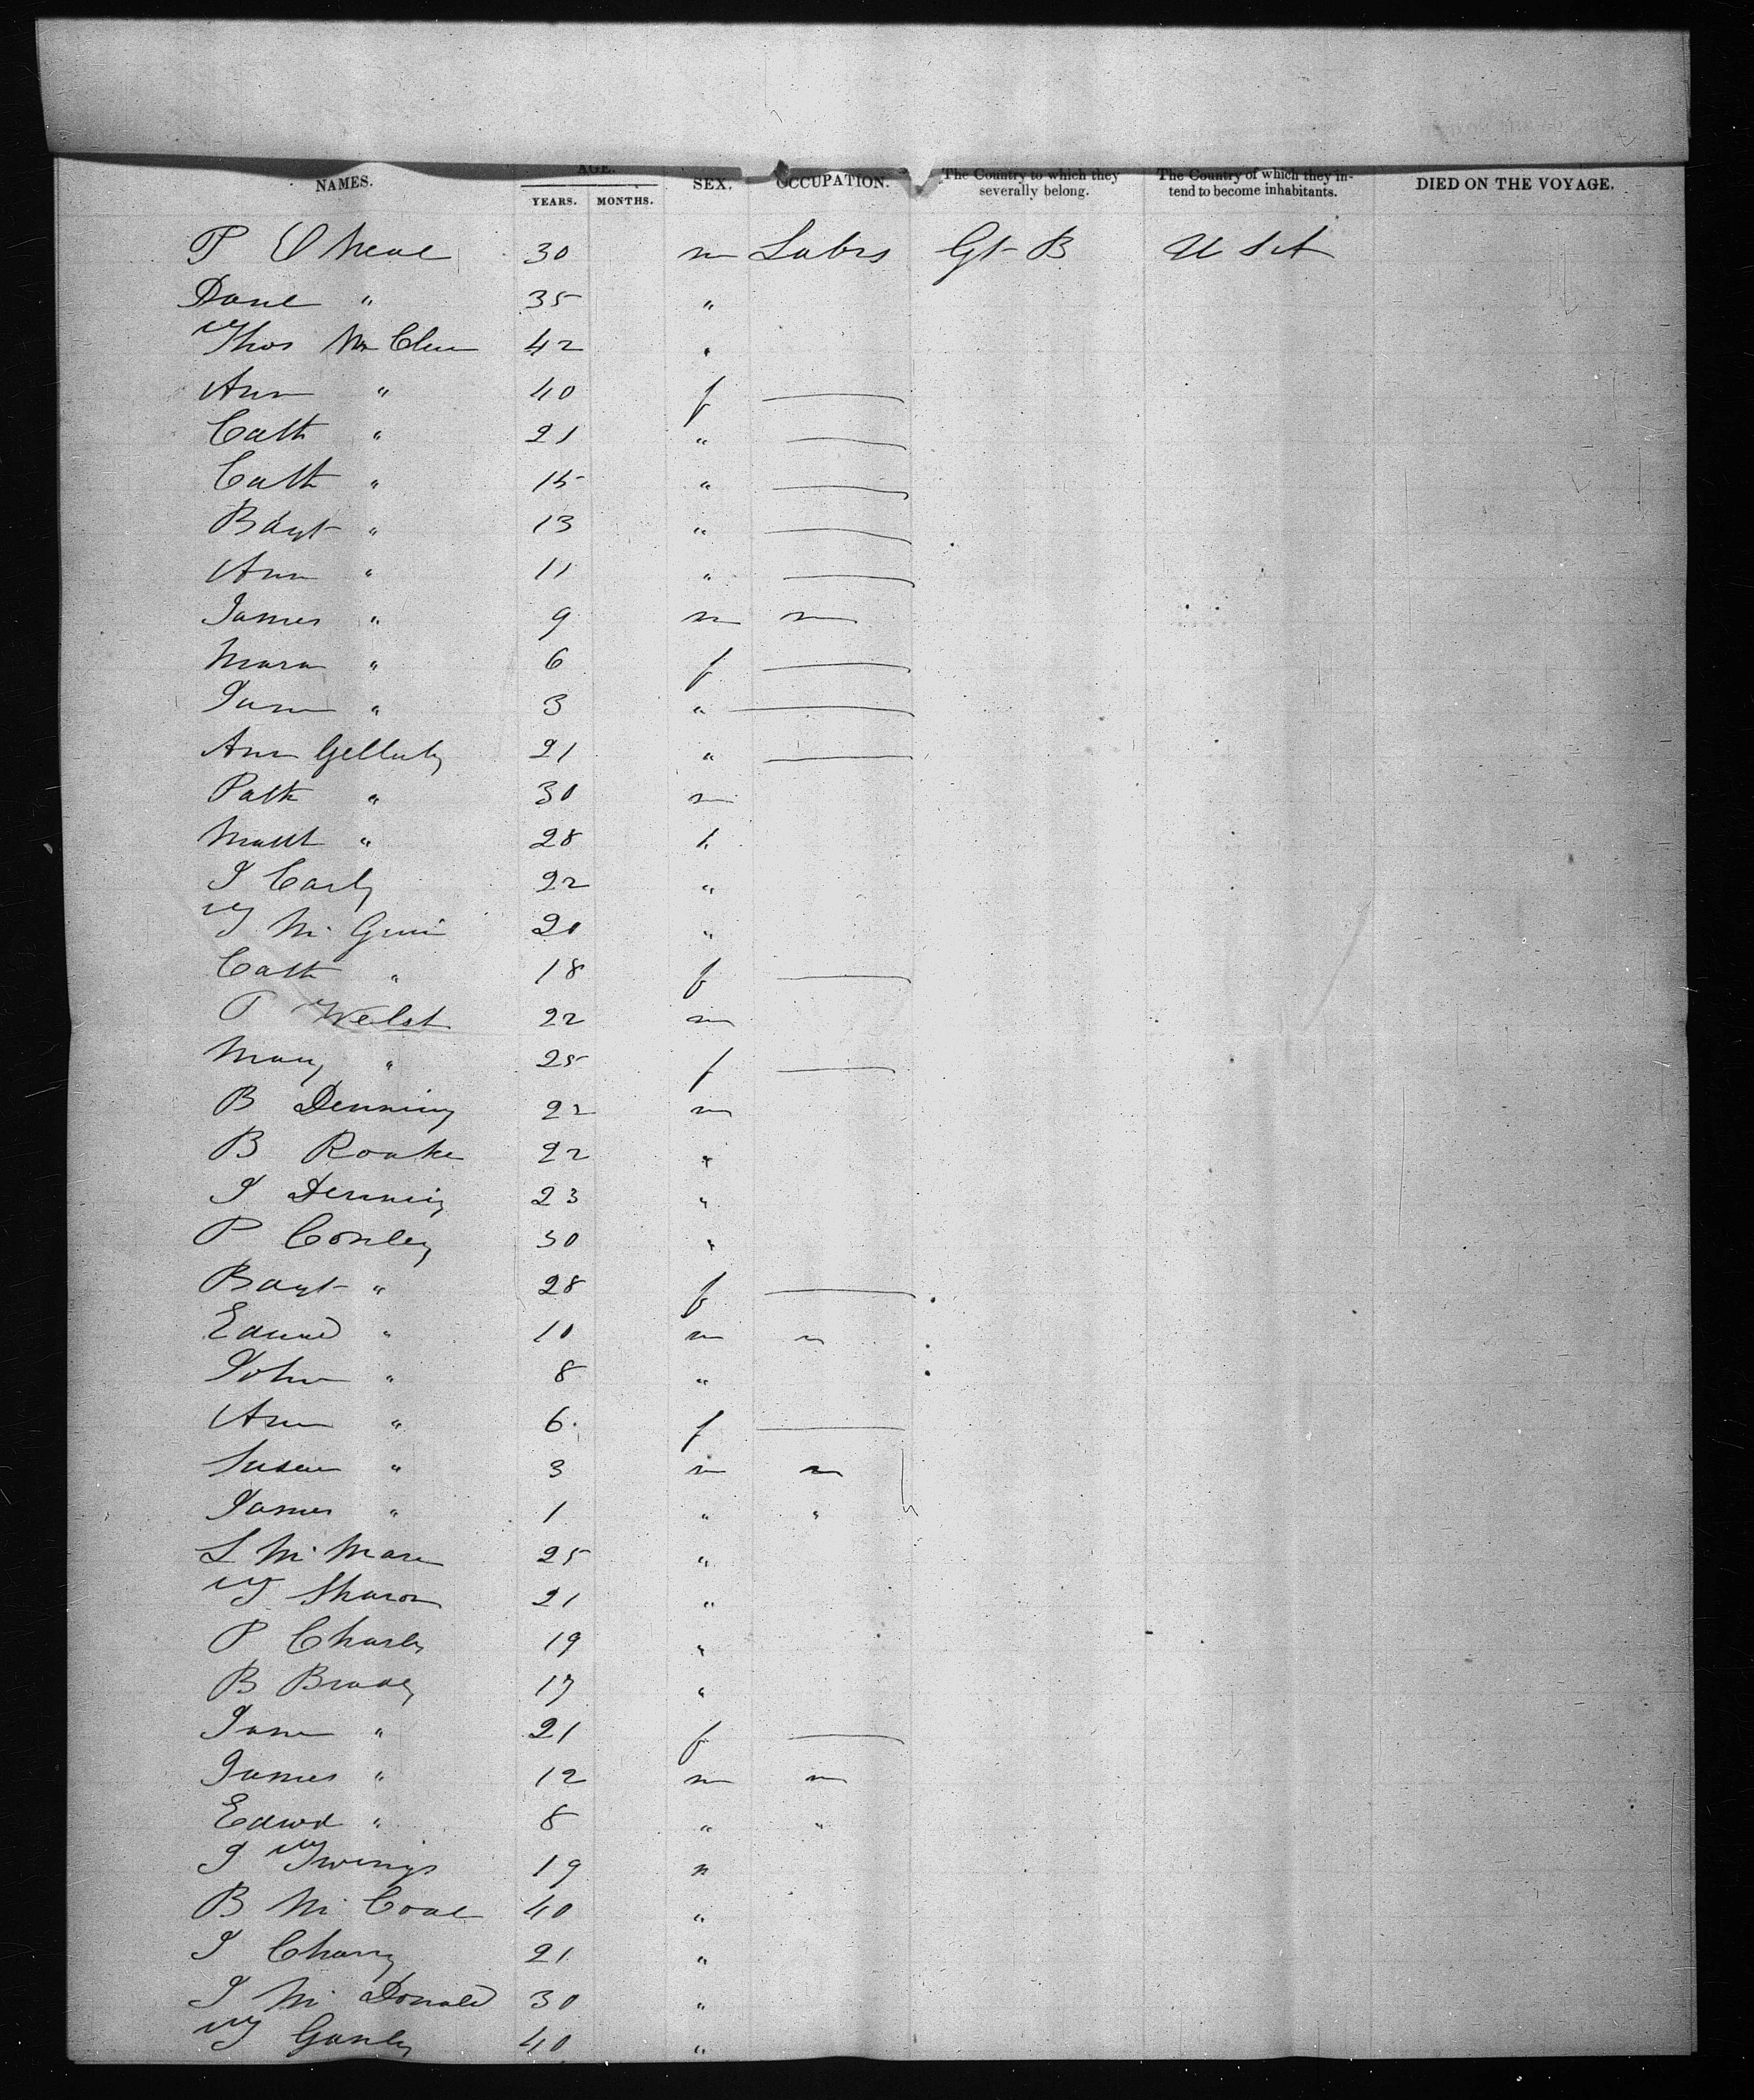 NAMES. AGE. YEARS. MONTHS. SEX. OCCUPATION. The Country to which they severally belong. The Country of which they intend to become inhabitants. DIED ON THE VOYAGE.
P O Neal 30 m Labrs Gt B U S A
Danl " 35 "
Thos Mc Clen 42 "
Ann " 40 f —
Cath " 21 " —
Cath " 15 " —
Bdgt " 13 " —
Ann " 11 " —
James " 9 m m
Mara " 6 f —
Jane " 3 " —
Ann Gelluly 21 " —
Patk " 30 m
Matt " 28 "
J Carly 22 "
T Mc Guin 20 "
Cath " 18 f —
P Welsh 22 m
Mary " 25 f —
B Denning 22 m
B Roake 22 "
J Denning 23 "
P Conley 30 "
Bdgt " 28 f —
Edwad " 10 m m
John " 8 "
Ann " 6 f —
Susan " 3 m m
James " 1 " "
L Mc Mara 25 "
T Sharon 21 "
P Charly 19 "
B Brady 17 "
Jane " 21 f —
James " 12 m m
Edwd " 8 " "
J Twings 19 "
B Mc Coal 40 "
J Charry 21 "
J Mc Donald 30 "
T Ganly 40 "